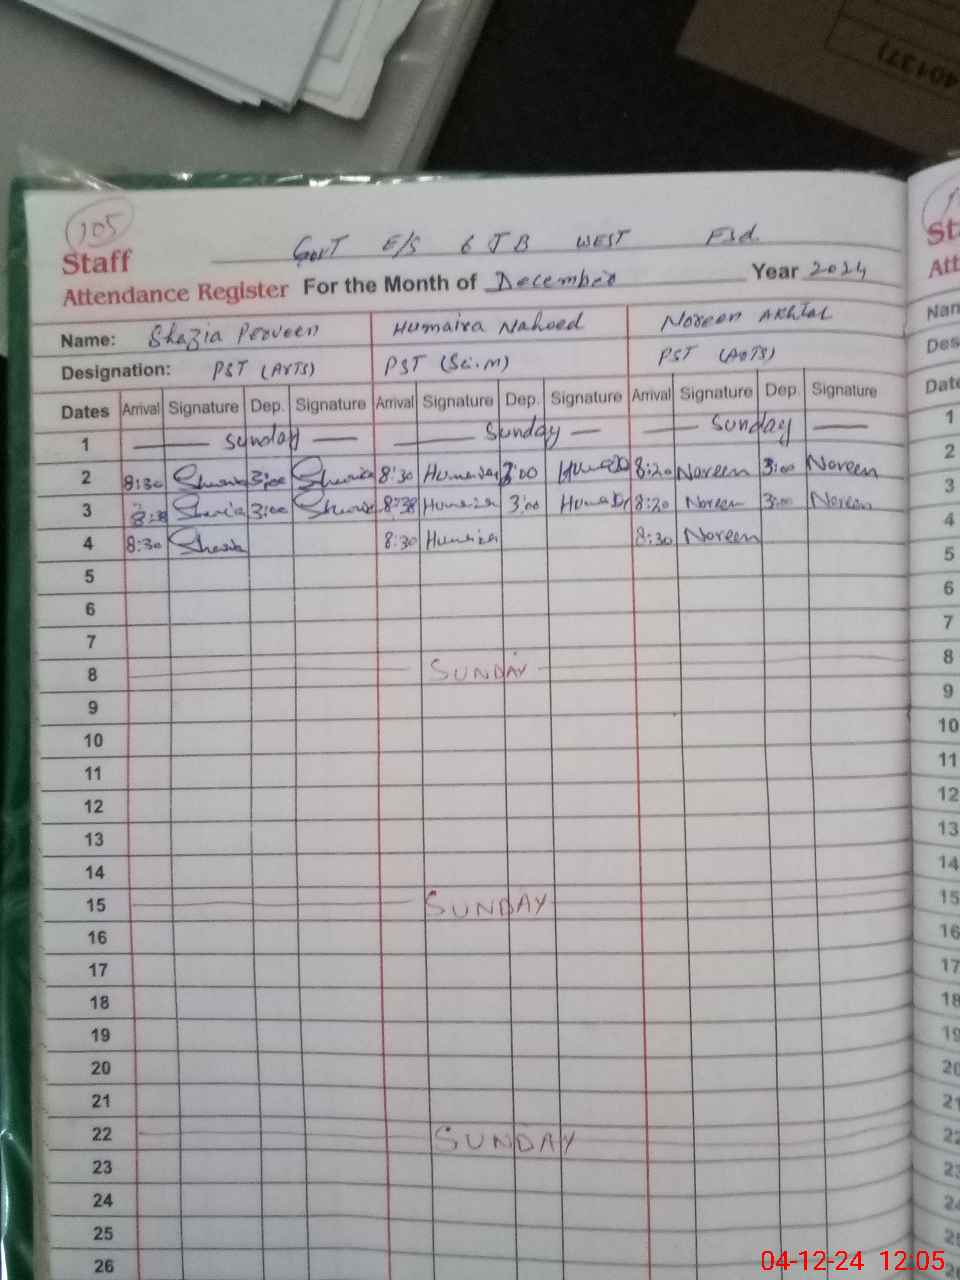 40137)
105
Staff
Govt E/S 6 JB WEST Fsd.
Attendance Register For the Month of December Year 2024
Name: Shazia Perveen Humaira Naheed Noreen Akhtar
Designation: PST (Arts) PST (Sci.M) PST (Arts)
Dates Arrival Signature Dep. Signature Arrival Signature Dep. Signature Arrival Signature Dep. Signature
1 Sunday Sunday Sunday
2 8:30 3:00 8:30 Humaira 3:00 8:20 Noreen 3:00 Noreen
3 3:00 Humaira 3:00 8:20 Noreen 3:00 Noreen
4 8:30 8:30 Humaira 8:30 Noreen
5
6
7
8 SUNDAY
9
10
11
12
13
14
15 SUNDAY
16
17
18
19
20
21
22 SUNDAY
23
24
25
26
Dates
1
2
3
4
5
6
7
8
9
10
11
12
13
14
15
16
17
18
04-12-24 12:05